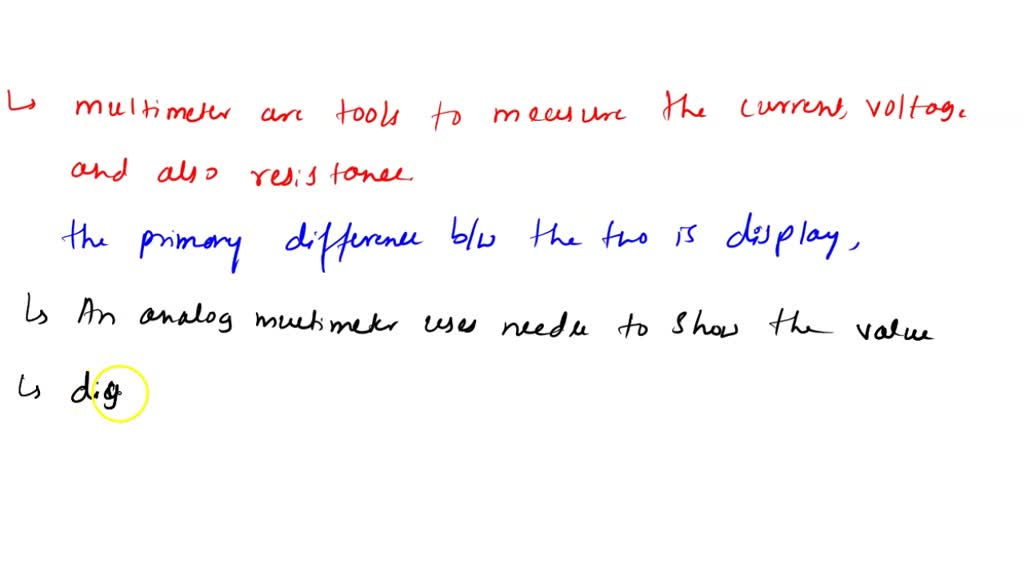 ↳ multimeter are tools to measure the current, voltage
and also resistance
the primary difference b/w the two is display,
↳ An analog multimeter uses needle to show the value
↳ dig